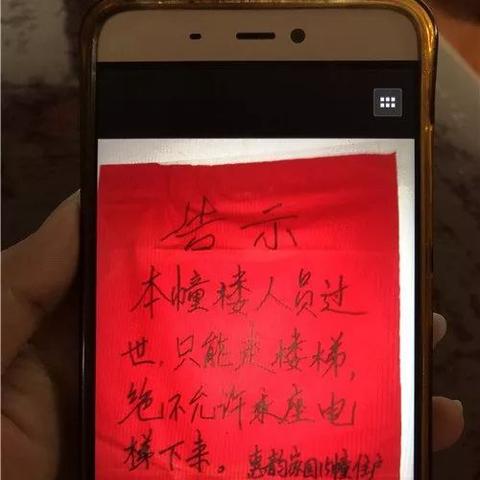 告示
本幢楼人员过
世,只能走楼梯,
绝不允许乘座电
梯下来。惠韵家园15幢住户